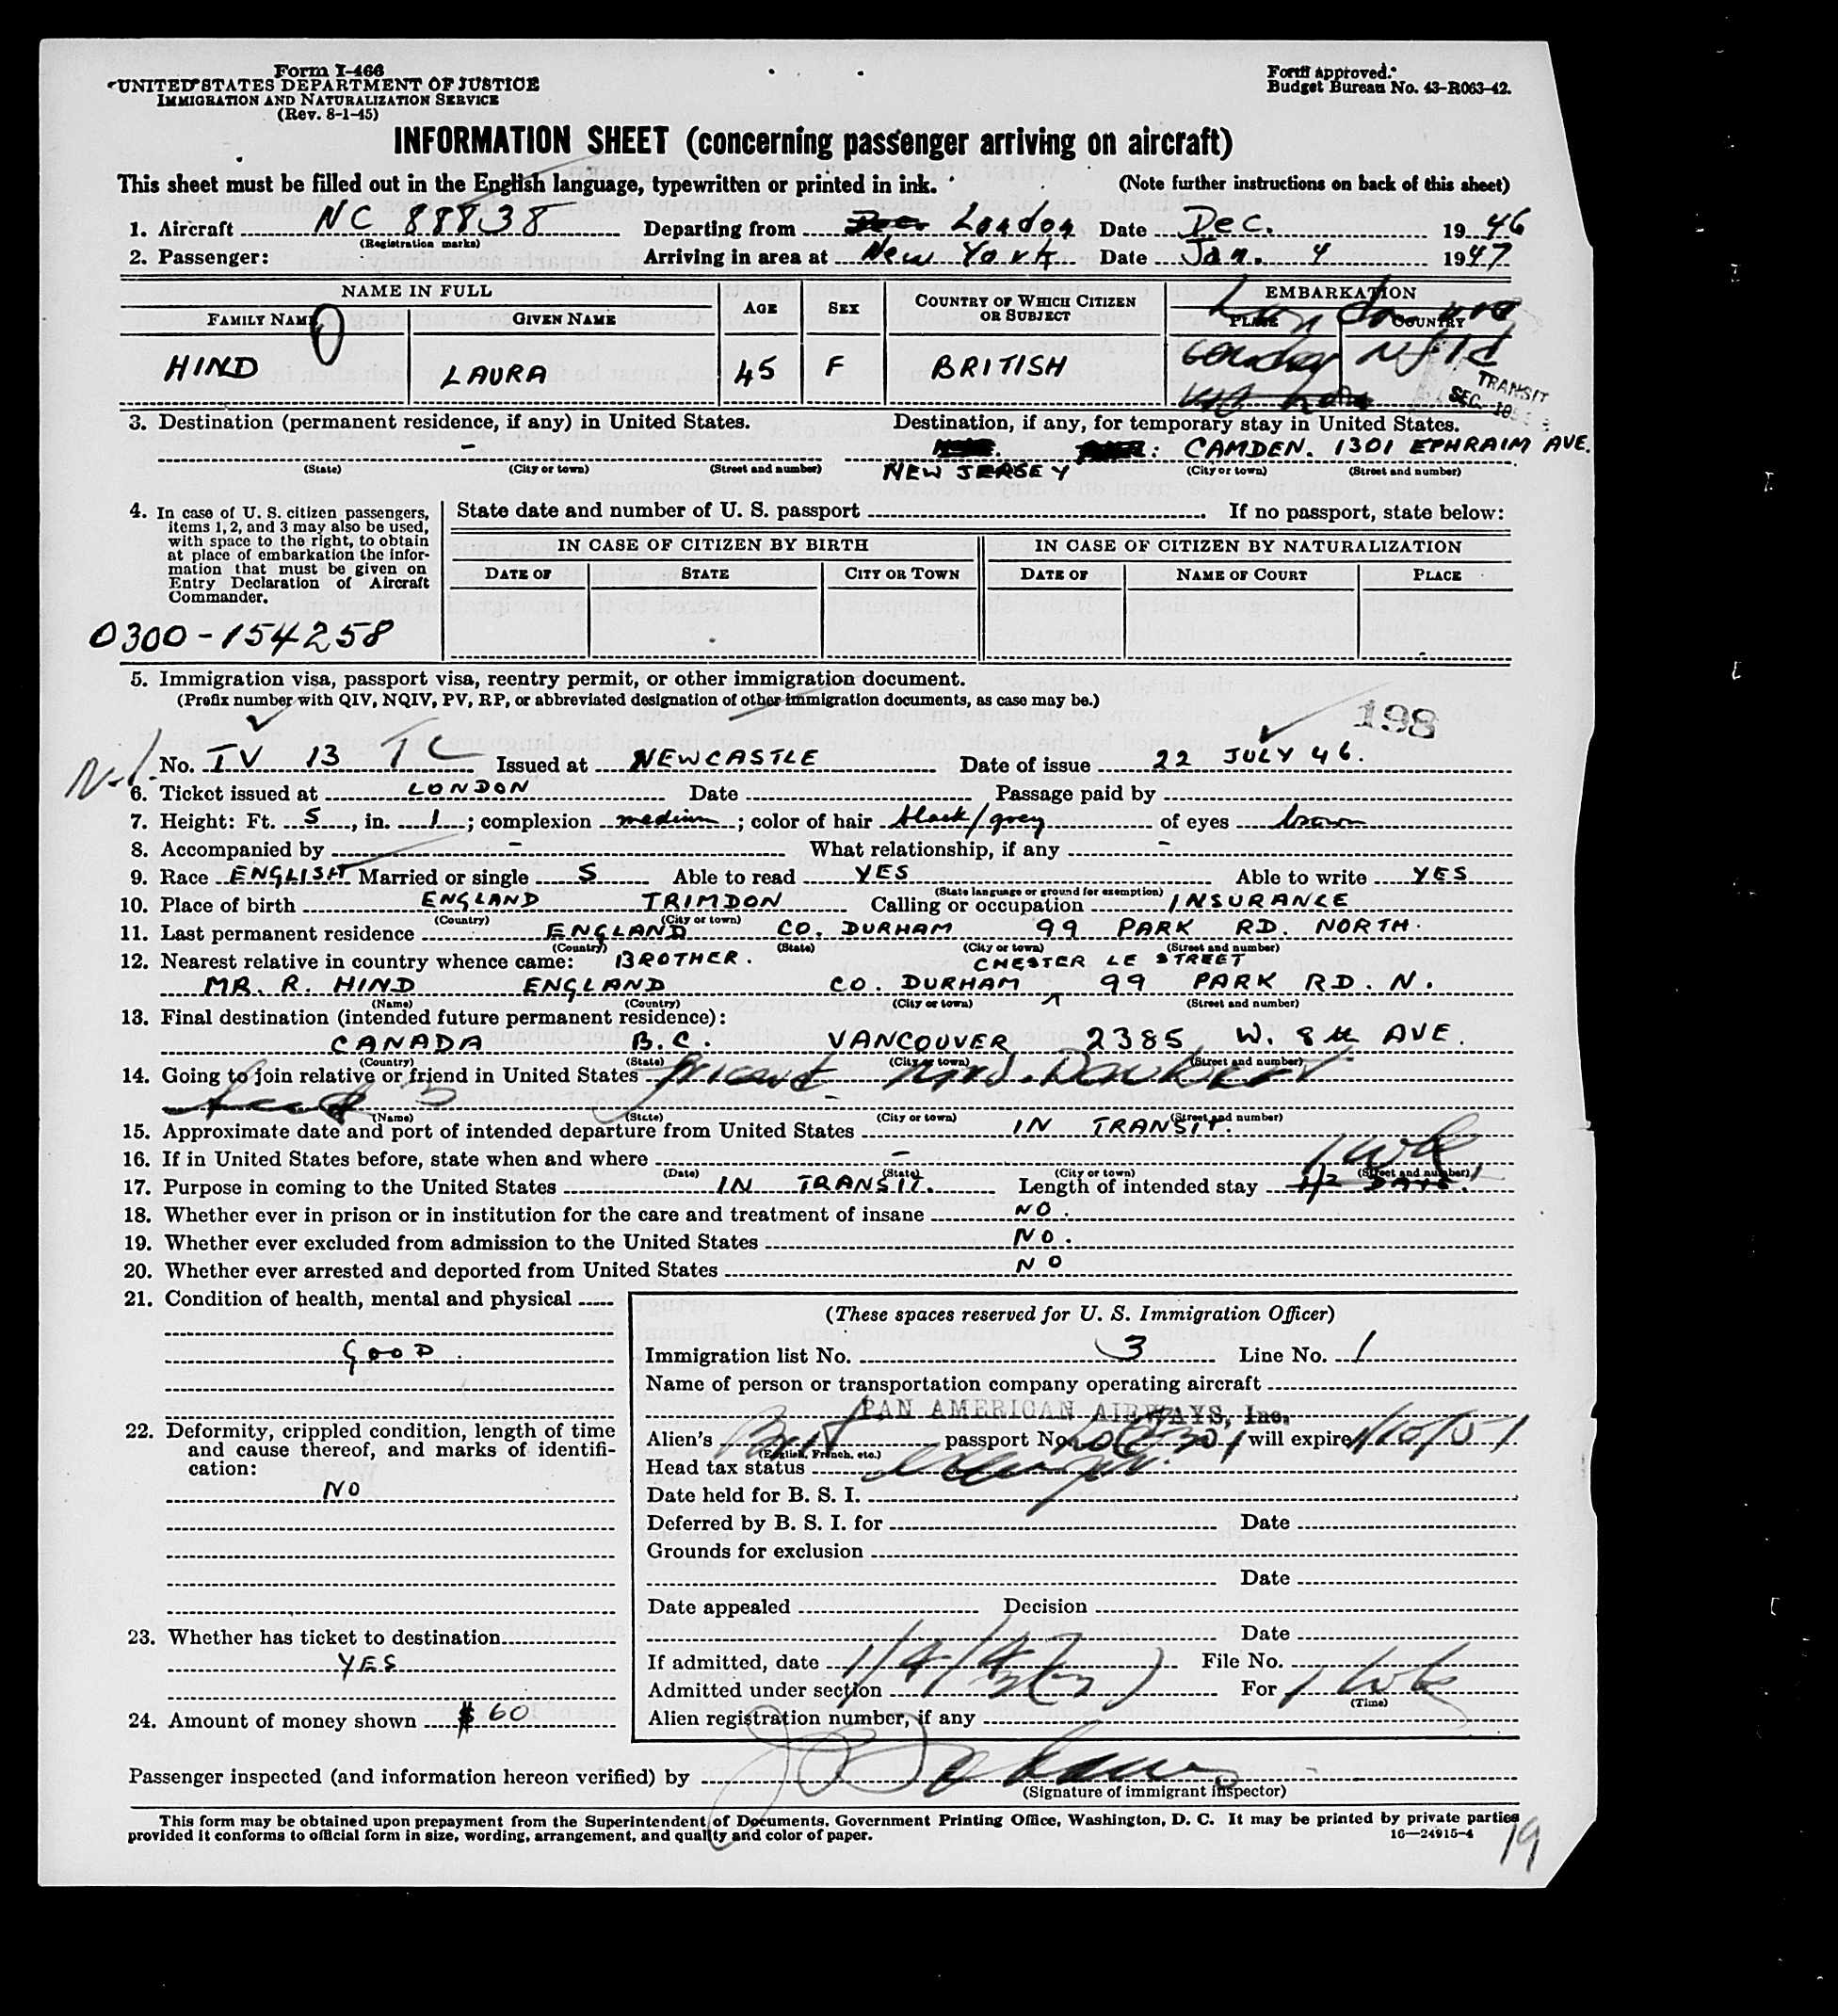 Form I-466
UNITED STATES DEPARTMENT OF JUSTICE
IMMIGRATION AND NATURALIZATION SERVICE
(Rev. 8-1-45)
Form approved.
Budget Bureau No. 43-R063-42.
INFORMATION SHEET (concerning passenger arriving on aircraft)
This sheet must be filled out in the English language, typewritten or printed in ink. (Note further instructions on back of this sheet)
1. Aircraft NC 88838 Departing from London Date Dec. 1946
(Registration marks)
2. Passenger: Arriving in area at New York Date Jan. 4 1947
NAME IN FULL AGE SEX COUNTRY OF WHICH CITIZEN OR SUBJECT EMBARKATION
FAMILY NAME GIVEN NAME PLACE COUNTRY
HIND LAURA 45 F BRITISH
Nfld
TRANSIT
SEC.
3. Destination (permanent residence, if any) in United States. Destination, if any, for temporary stay in United States.
- : CAMDEN. 1301 EPHRAIM AVE.
NEW JERSEY
(State) (City or town) (Street and number) (City or town) (Street and number)
4. In case of U. S. citizen passengers, items 1, 2, and 3 may also be used, with space to the right, to obtain at place of embarkation the information that must be given on Entry Declaration of Aircraft Commander.
State date and number of U. S. passport If no passport, state below:
IN CASE OF CITIZEN BY BIRTH IN CASE OF CITIZEN BY NATURALIZATION
DATE OF STATE CITY OR TOWN DATE OF NAME OF COURT PLACE
0300-154258
5. Immigration visa, passport visa, reentry permit, or other immigration document.
(Prefix number with QIV, NQIV, PV, RP, or abbreviated designation of other immigration documents, as case may be.)
198
No. TV 13 TC Issued at NEWCASTLE Date of issue 22 JULY 46.
6. Ticket issued at LONDON Date Passage paid by
7. Height: Ft. 5, in. 1; complexion medium; color of hair black/grey of eyes brown
8. Accompanied by - What relationship, if any -
9. Race ENGLISH Married or single S Able to read YES Able to write YES
(State language or ground for exemption)
10. Place of birth ENGLAND TRIMDON Calling or occupation INSURANCE
(Country) (City or town)
11. Last permanent residence ENGLAND CO. DURHAM 99 PARK RD. NORTH.
(Country) (State) (City or town) (Street and number)
12. Nearest relative in country whence came: BROTHER. CHESTER LE STREET
MR. R. HIND ENGLAND CO. DURHAM 99 PARK RD. N.
(Name) (Country) (City or town) (Street and number)
13. Final destination (intended future permanent residence):
CANADA B.C. VANCOUVER 2385 W. 8th AVE.
(Country) (State) (City or town) (Street and number)
14. Going to join relative or friend in United States friend Mrs.
(Name) (State) (City or town) (Street and number)
15. Approximate date and port of intended departure from United States IN TRANSIT.
16. If in United States before, state when and where -
(Date) (State) (City or town) (Street and number)
17. Purpose in coming to the United States IN TRANSIT. Length of intended stay 1 wk
18. Whether ever in prison or in institution for the care and treatment of insane NO.
19. Whether ever excluded from admission to the United States NO.
20. Whether ever arrested and deported from United States NO
21. Condition of health, mental and physical
GOOD.
22. Deformity, crippled condition, length of time and cause thereof, and marks of identification:
NO
23. Whether has ticket to destination
YES
24. Amount of money shown $ 60
(These spaces reserved for U. S. Immigration Officer)
Immigration list No. 3 Line No. 1
Name of person or transportation company operating aircraft
PAN AMERICAN AIRWAYS, Inc.
Alien's Brit passport No. will expire 1/10/51
(English, French, etc.)
Head tax status
Date held for B. S. I.
Deferred by B. S. I. for Date
Grounds for exclusion
Date
Date appealed Decision
Date
If admitted, date 1/4/47 File No.
Admitted under section 3(3) For 1 wk
(Time)
Alien registration number, if any
Passenger inspected (and information hereon verified) by
(Signature of immigrant inspector)
This form may be obtained upon prepayment from the Superintendent of Documents, Government Printing Office, Washington, D. C. It may be printed by private parties
provided it conforms to official form in size, wording, arrangement, and quality and color of paper. 16—24915-4
19